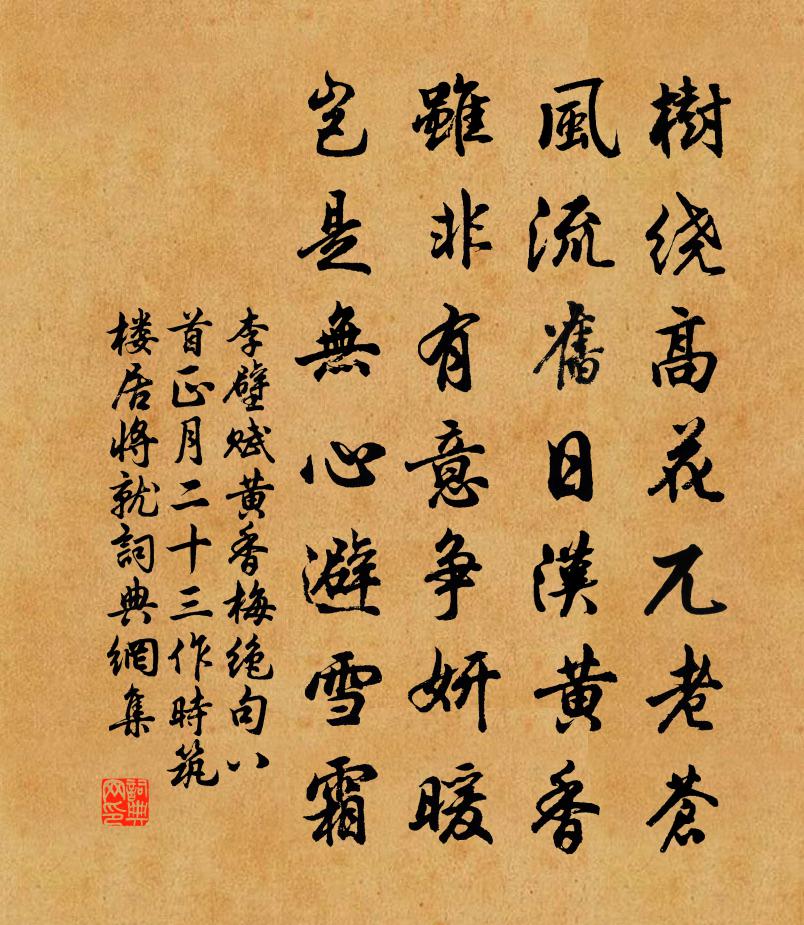 樹绕髙花兀老蒼
風流舊日漢黄香
雖非有意争妍暖
豈是無心避雪霜
李壁赋黄香梅绝句八
首正月二十三作時筑
楼居将就詞典網集
詞典
网印